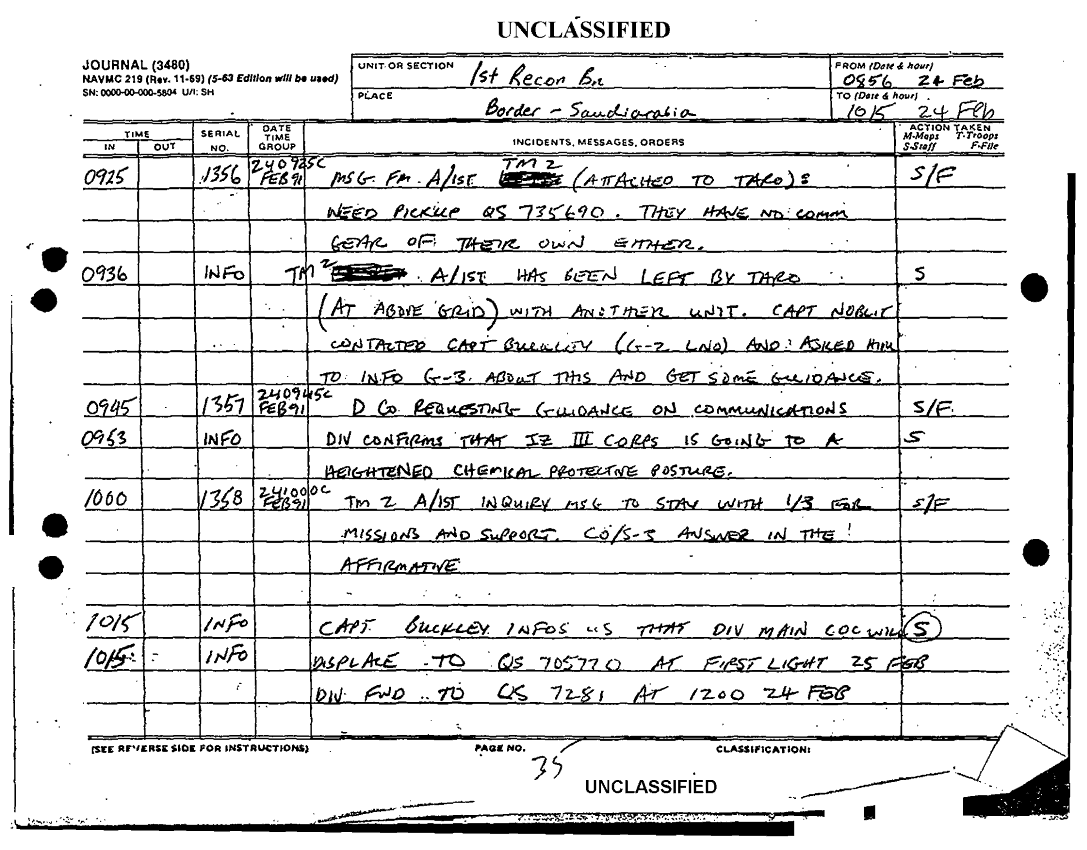 UNCLASSIFIED
JOURNAL (3480)
NAVMC 219 (Rev. 11-69) (5-63 Edition will be used)
SN: 0000-00-000-5804 U/I: SH
UNIT OR SECTION 1st Recon Bn
PLACE Border - Saudiarabia
FROM (Date & hour) 0856 24 Feb
TO (Date & hour) 1015 24 Feb
TIME SERIAL NO. DATE TIME GROUP INCIDENTS, MESSAGES, ORDERS ACTION TAKEN
IN OUT M-Maps T-Troops
S-Staff F-File
0925 1356 240925C FEB91 MSG FM A/1ST TM 2 (ATTACHED TO TARO): S/F
NEED PICKUP QS 735690. THEY HAVE NO COMM
GEAR OF THEIR OWN EITHER.
0936 INFO TM 2 A/1ST HAS BEEN LEFT BY TARO S
(AT ABOVE GRID) WITH ANOTHER UNIT. CAPT NOBLIT
CONTACTED CAPT (G-2 LNO) AND ASKED HIM
TO INFO G-3 ABOUT THIS AND GET SOME GUIDANCE.
0945 1357 240945C FEB91 D CO REQUESTING GUIDANCE ON COMMUNICATIONS S/F
0953 INFO DIV CONFIRMS THAT IZ III CORPS IS GOING TO A S
HEIGHTENED CHEMICAL PROTECTIVE POSTURE.
1000 1358 241000C FEB91 TM 2 A/1ST INQUIRY MSG TO STAY WITH 1/3 FOR S/F
MISSIONS AND SUPPORT. CO/S-3 ANSWER IN THE
AFFIRMATIVE
1015 INFO CAPT BUCKLEY INFOS US THAT DIV MAIN COC WILL S
1015 INFO DISPLACE TO QS 705770 AT FIRST LIGHT 25 FEB
DIV FWD TO QS 7281 AT 1200 24 FEB
(SEE REVERSE SIDE FOR INSTRUCTIONS) PAGE NO. 35 CLASSIFICATION:
UNCLASSIFIED